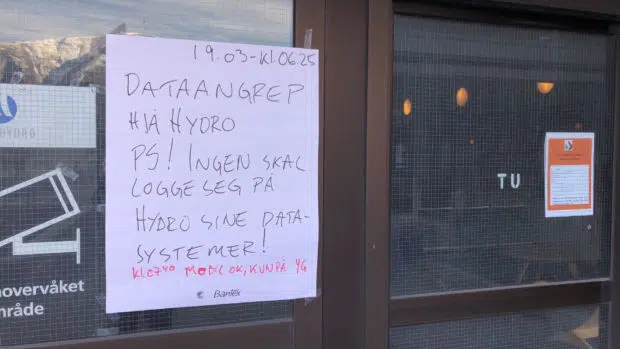 19.03-KL.06.25
DATAANGREP
HJÅ HYDRO
PS! INGEN SKAL
LOGGE SEG PÅ
HYDRO SINE DATA-
SYSTEMER!
KL07⁴⁰ MOBIL OK, KUN PÅ 4G
Bantex
HYDRO
novervåket
mråde
TU